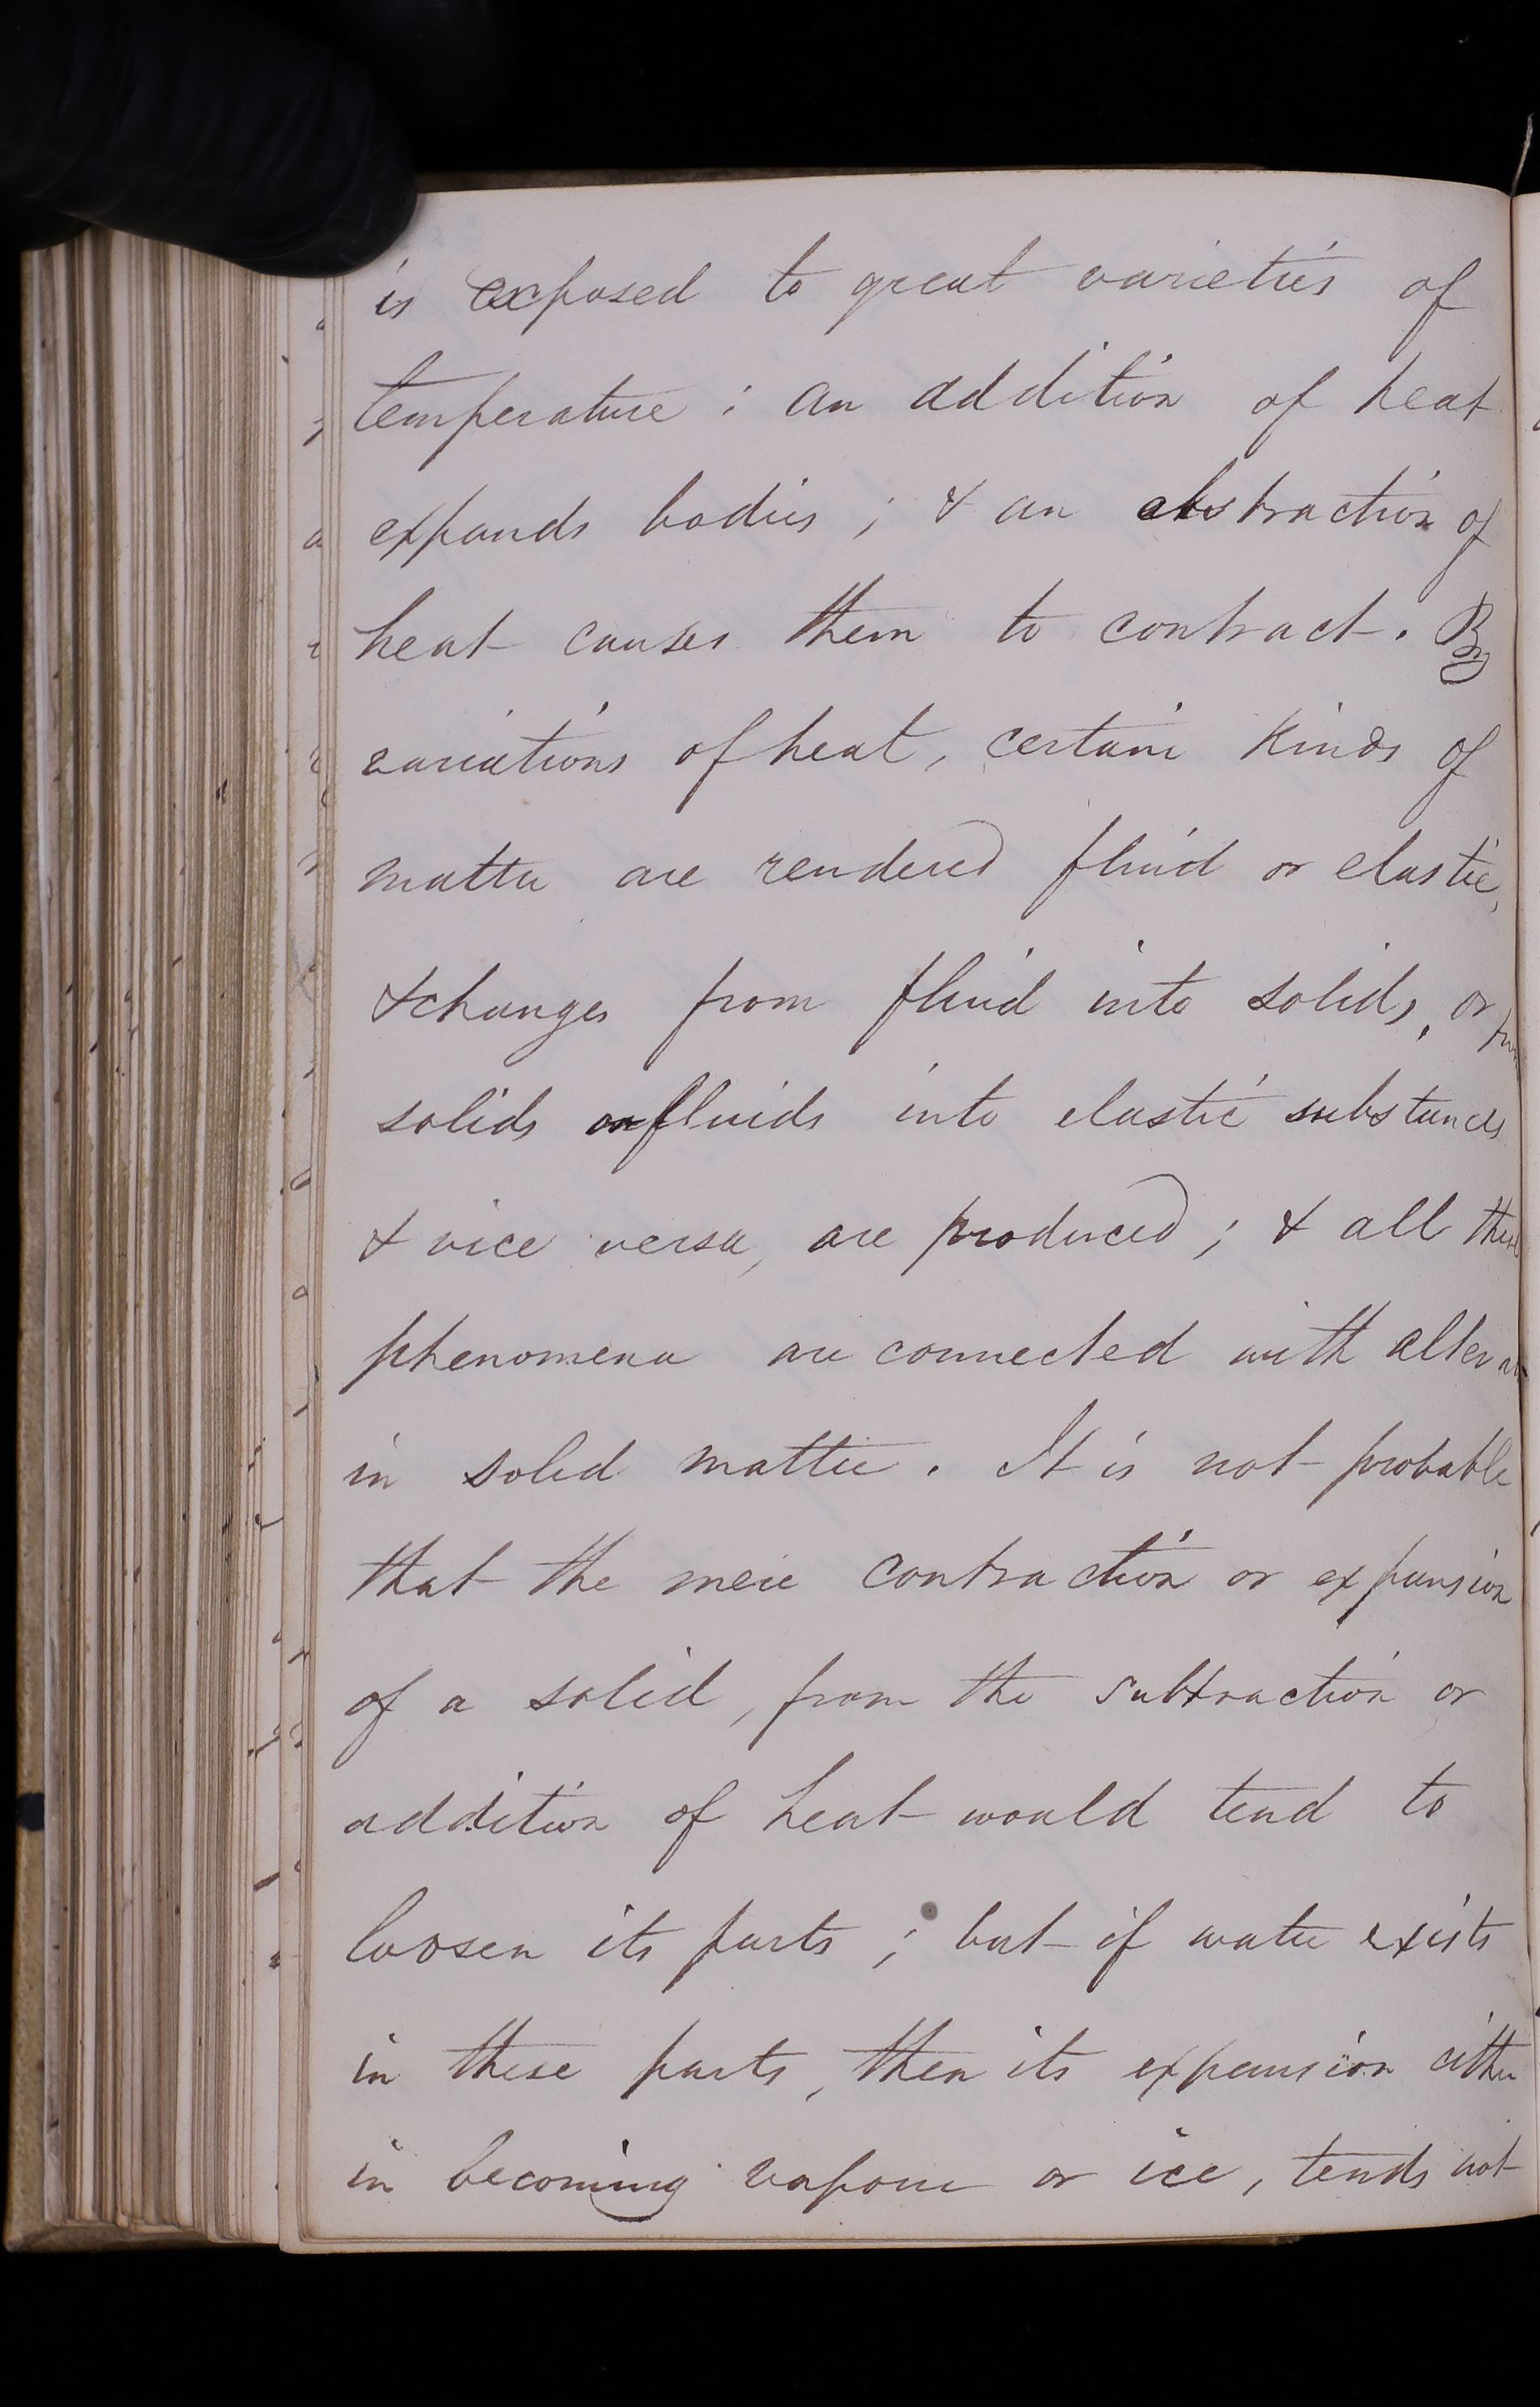 is exposed to great varieties of
temperature : an addition of heat
expands bodies ; & an abstraction of
heat causes them to contract. By
variations of heat, certain kinds of
matter are rendered fluid or elastic,
& changes from fluid into solids, or from
solids or fluids into elastic substances
& vice versa, are produced ; & all these
phenomena are connected with
in solid matter. It is not probable
that the mere contraction or expansion
of a solid, from the subtraction or
addition of heat would tend to
loosen its parts ; but if water exists
in these parts, then its expansion either
in becoming vapour or ice, tends not